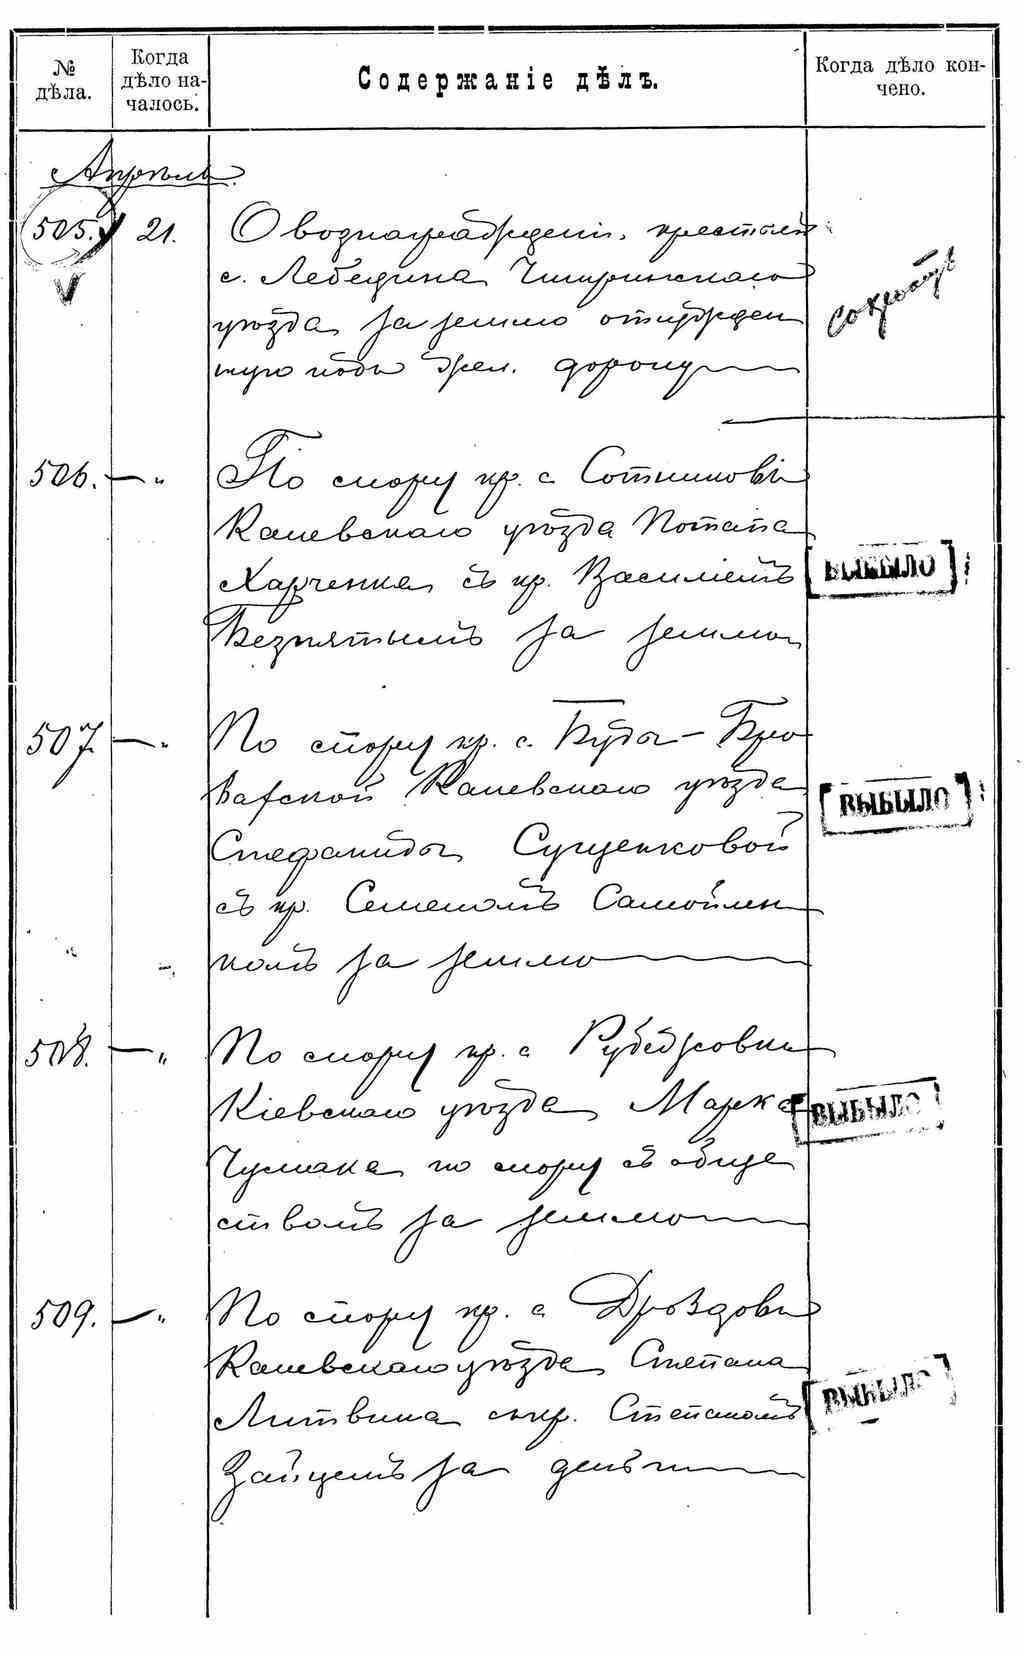 № дѣла.
Когда дѣло на-
чалось.
Содержаніе дѣлъ.
Когда дѣло кон-
чено.
Апрѣль.
505. 21. О вознагражденіи крестьянъ
с. Лебедина Чигиринскаго
уѣзда за землю отчужден
ную подъ жел. дорогу
506. — " По спору кр. с Сотниковки
Каневскаго уѣзда Потапа
Харченка съ кр. Василіемъ
Безпятымъ за землю
ВЫБЫЛО
507. — " По спору кр. с. Буды-Бро
варской Каневскаго уѣзда
Стефаниды Сущенковой
съ кр. Семеномъ Самойлен
комъ за землю
ВЫБЫЛО
508. — " По спору кр. с Рубежовки
Кіевскаго уѣзда Марка
Чумака по спору съ обще
ствомъ за землю
ВЫБЫЛО
509. — " По спору кр. с Дроздовки
Каневскаго уѣзда Степана
Литвина съ кр. Степаномъ
Зайцемъ за деньги
ВЫБЫЛО